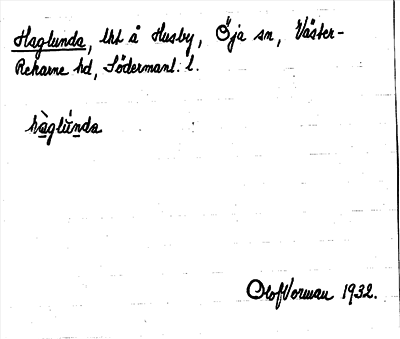 Haglunda, lht å Husby, Öja sn, Väster-
Rekarne hd, Södermanl. l.
hàglúnda
Olof Vorman 1932.